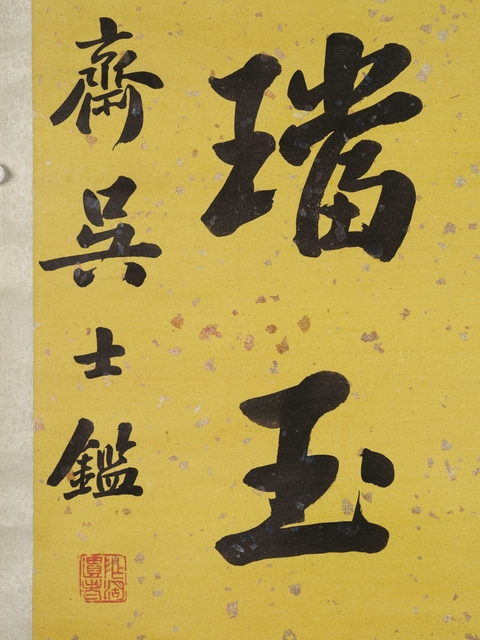 璫玉
齋吳士鑑